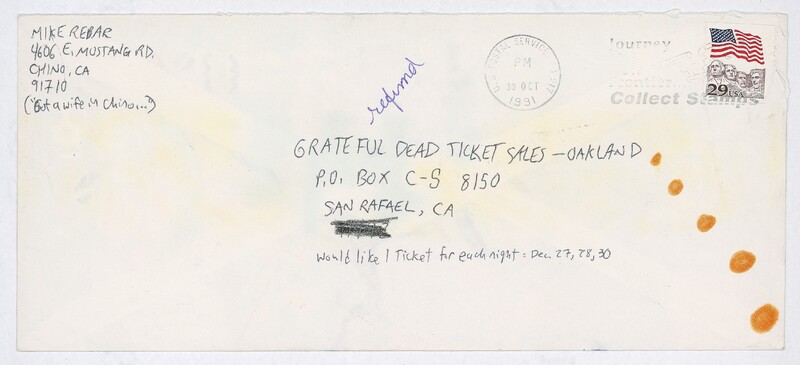 MIKE REBAR
4606 E. MUSTANG RD.
CHINO, CA
91710
("Got a wife in Chino...")
U.S. POSTAL SERVICE
PM
30 OCT
1991
Journey
Frontier
Collect Stamps
29 USA
GRATEFUL DEAD TICKET SALES – OAKLAND
P.O. BOX C-S 8150
SAN RAFAEL, CA
Would like 1 Ticket for each night: Dec. 27, 28, 30